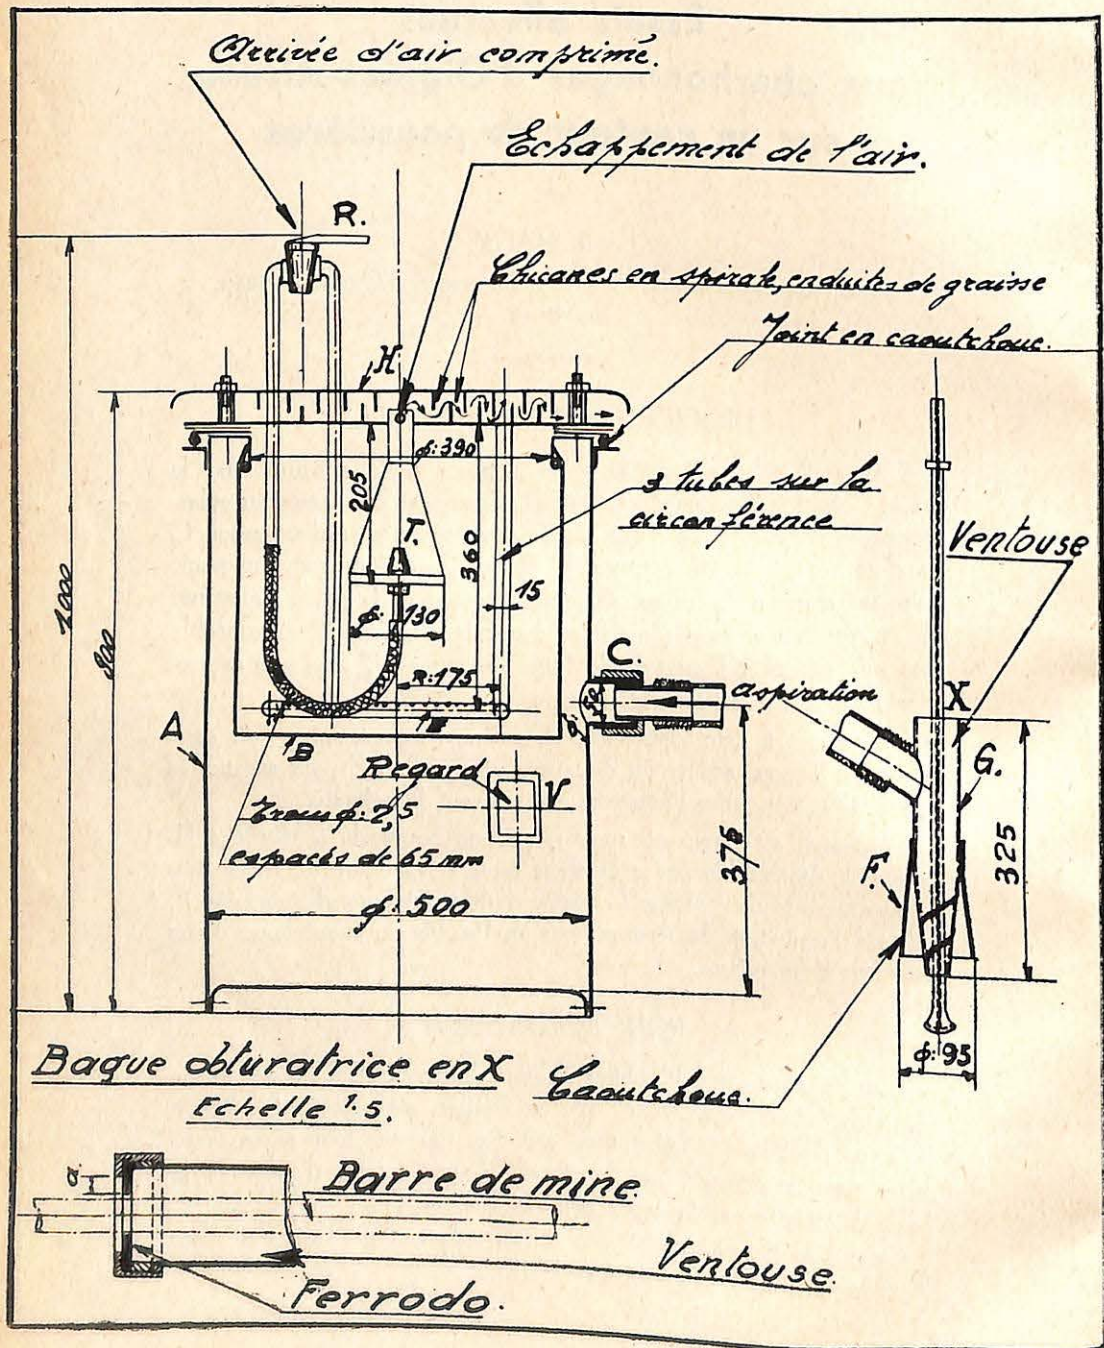 Arrivée d'air comprimé.
Echappement de l'air.
R.
Chicanes en spirale, enduites de graisse
Joint en caoutchouc.
H
φ: 390
205
3 tubes sur la
circonférence
Ventouse
T.
360
15
1000
900
φ: 130
C.
R: 175
50
aspiration
X
A
E
B
G.
Regard
V
Trous φ: 2,5
espacés de 65 mm
375
325
F.
φ: 500
φ: 95
Bague obturatrice en X
Echelle 1.5.
Caoutchouc.
a
Barre de mine.
Ventouse.
Ferrodo.